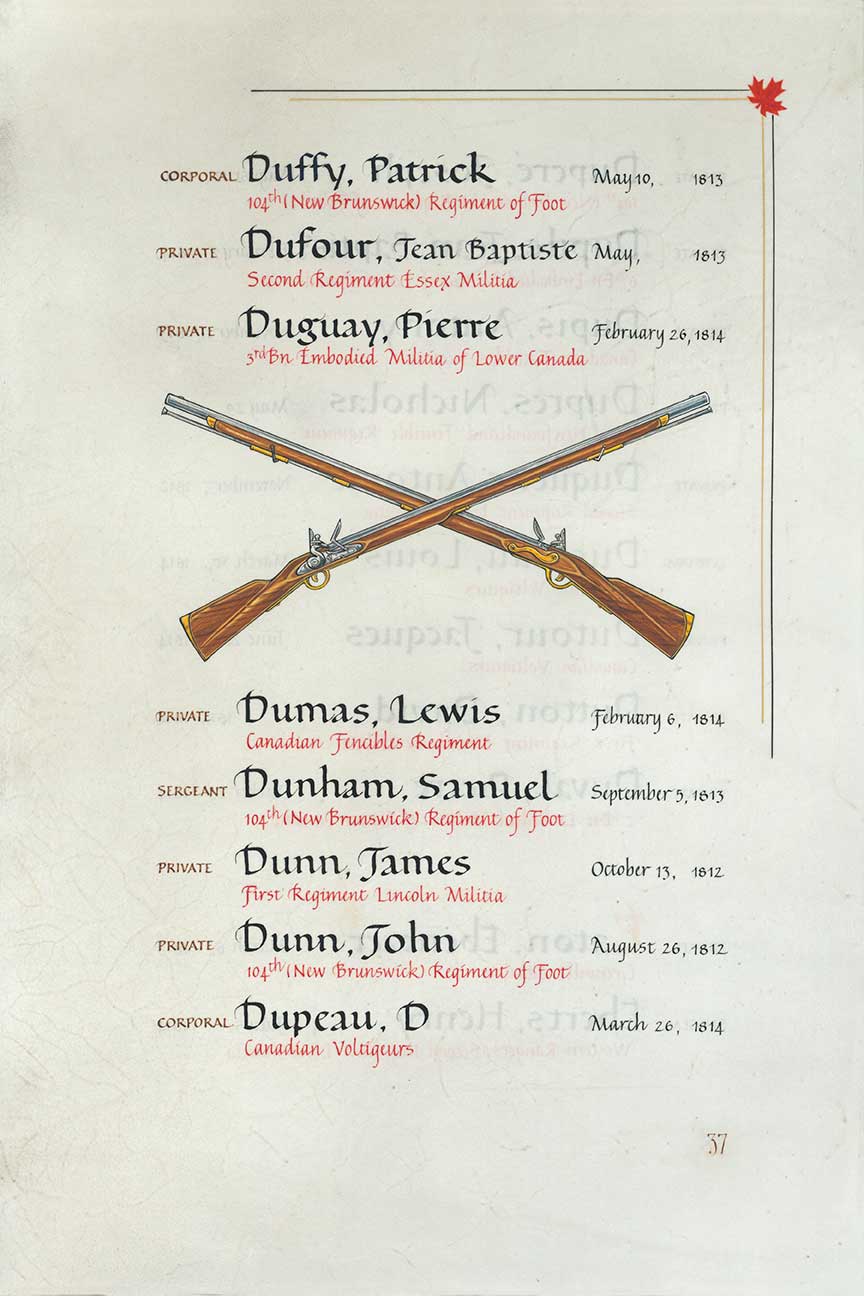 CORPORAL Duffy, Patrick May 10, 1813
104th (New Brunswick) Regiment of Foot
PRIVATE Dufour, Jean Baptiste May, 1813
Second Regiment Essex Militia
PRIVATE Duguay, Pierre February 26, 1814
3rd Bn Embodied Militia of Lower Canada
PRIVATE Dumas, Lewis February 6, 1814
Canadian Fencibles Regiment
SERGEANT Dunham, Samuel September 5, 1813
104th (New Brunswick) Regiment of Foot
PRIVATE Dunn, James October 13, 1812
First Regiment Lincoln Militia
PRIVATE Dunn, John August 26, 1812
104th (New Brunswick) Regiment of Foot
CORPORAL Dupeau, D March 26, 1814
Canadian Voltigeurs
37